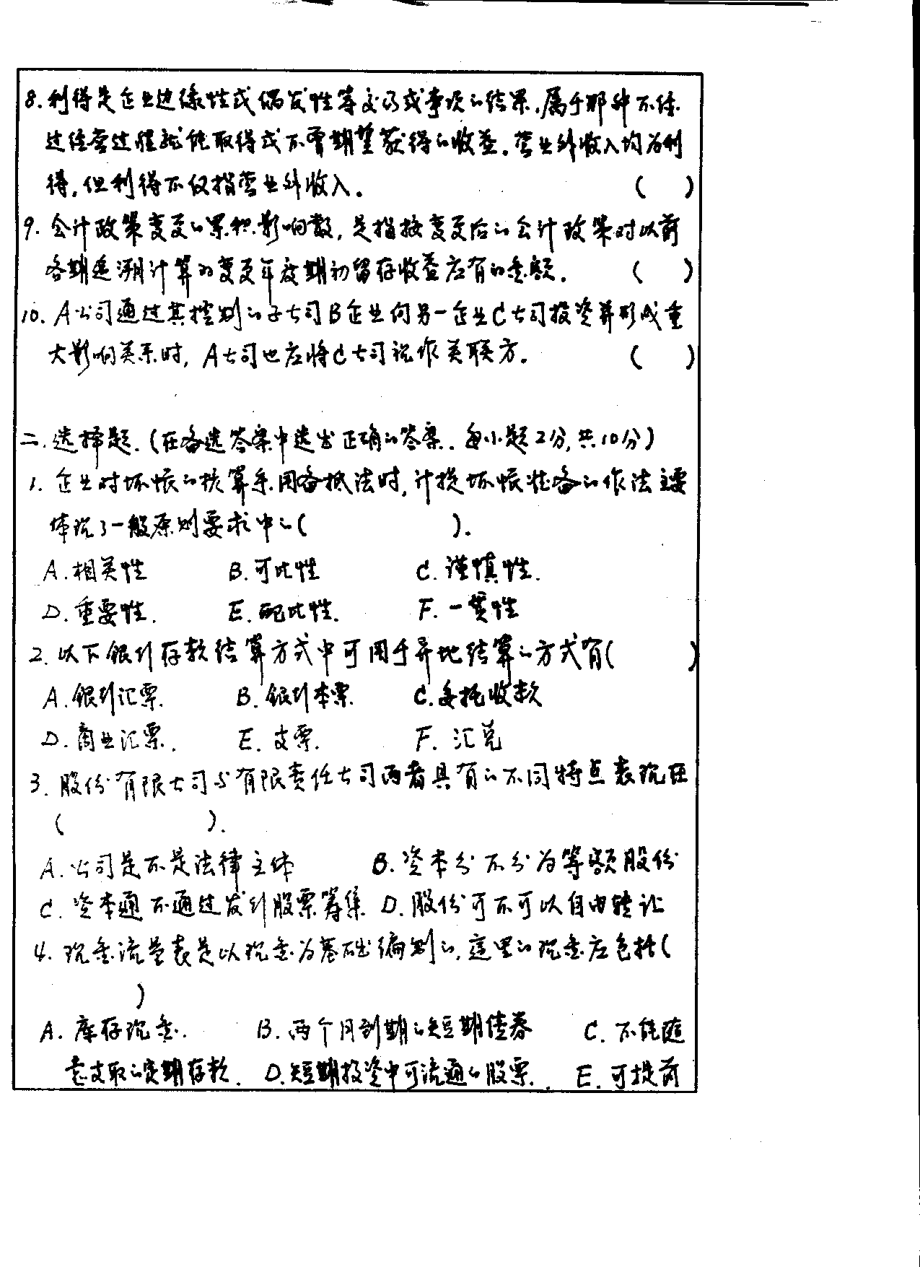 8.利得是企业边缘性或偶发性等交易或事项的结果,属于那种不经
过经营过程就能取得或不曾期望获得的收益。营业外收入均为利
得,但利得不仅指营业外收入。 ( )
9.会计政策变更的累积影响数,是指按变更后的会计政策对以前
各期追溯计算的变更年度期初留存收益应有的金额。 ( )
10. A公司通过其控制的子公司B企业向另一企业C公司投资并形成重
大影响关系时, A公司也应将C公司视作关联方。 ( )
二.选择题.(在备选答案中选出正确的答案。每小题2分,共10分)
1. 企业对坏帐的核算采用备抵法时,计提坏帐准备的作法主要
体现了一般原则要求中的( ).
A.相关性 B.可比性 C.谨慎性.
D.重要性. E.配比性. F.一贯性
2. 以下银行存款结算方式中可用于异地结算的方式有( )
A.银行汇票. B.银行本票. C.委托收款
D.商业汇票. E.支票. F.汇兑
3. 股份有限公司与有限责任公司两者具有的不同特点表现在
( ).
A.公司是不是法律主体 B.资本分不分为等额股份
C.资本通不通过发行股票筹集 D.股份可不可以自由转让
4. 现金流量表是以现金为基础编制的,这里的现金应包括(
)
A.库存现金. B.两个月到期的短期债券 C.不能随
意支取的定期存款. D.短期投资中可流通的股票. E.可提前